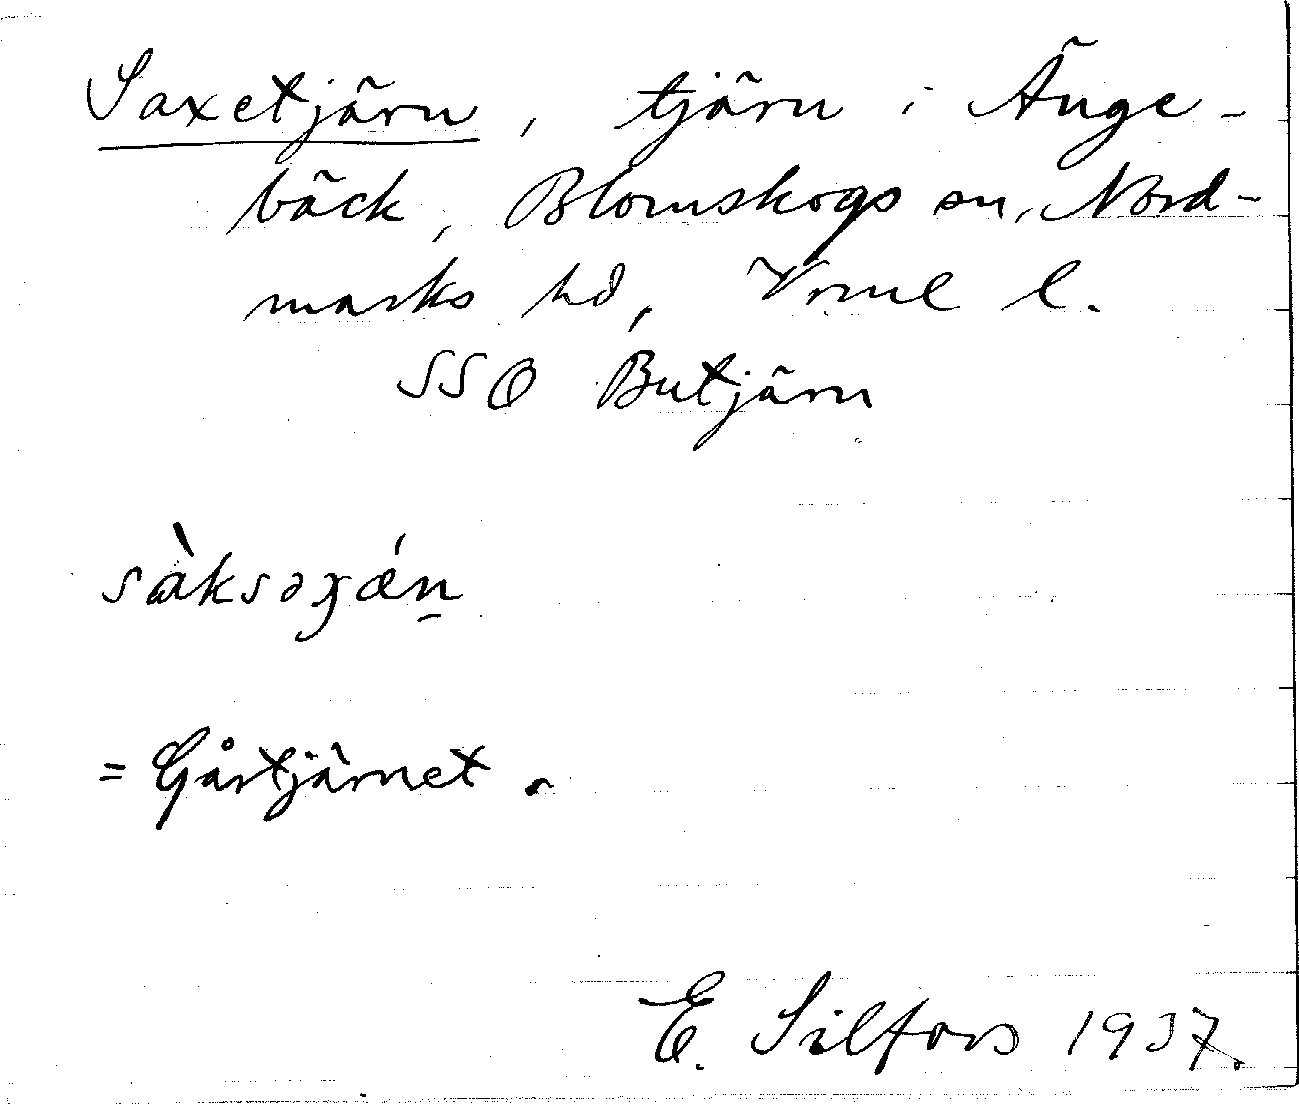 Saxetjärn, tjärn i Änge-
bäck, Blomskogs sn, Nord-
marks hd, Vrml l.
SSO Butjärn
sàksəʒǽn̠
= Gårtjärnet.
E. Silfors 1937.